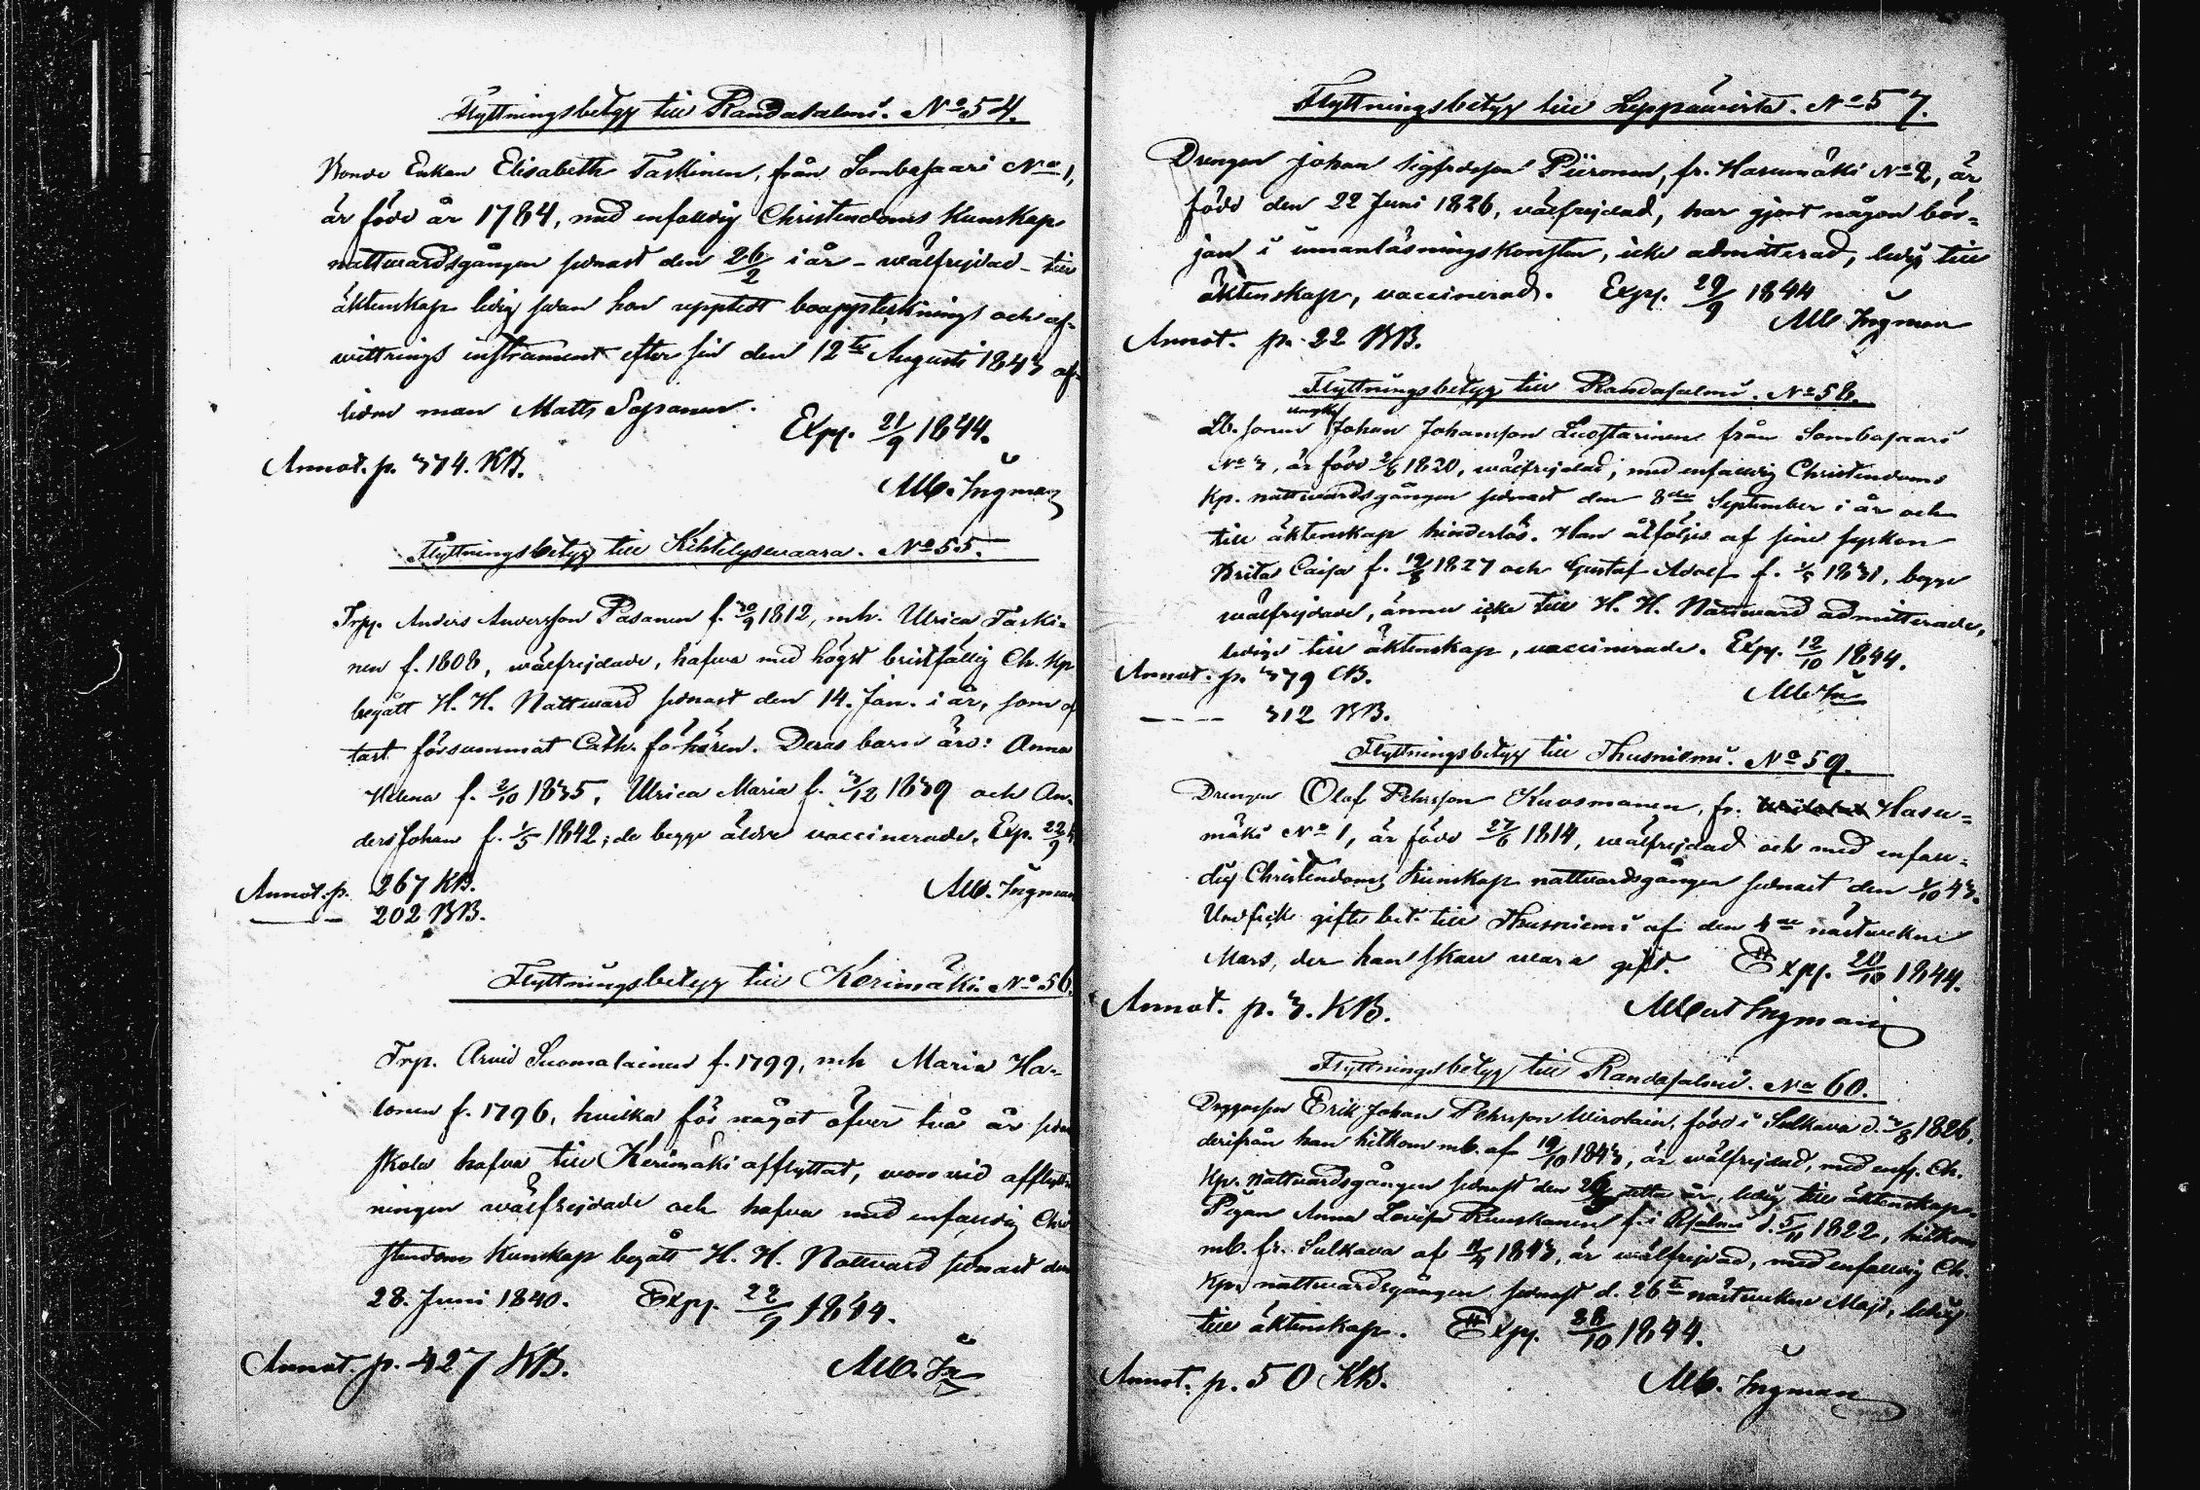 Flyttningsbetyg till Randasalmi. No 54.
Bonde Enkan Elisabeth Taskinen, från Sombasaari No 1,
är född år 1784, med enfaldig Christendoms Kunskap
nattvardsgången sednast den 26/2 i år - wälfrejdad - till
äktenskap ledig sedan hon upptedt boupptecknings och af-
wittrings instrument efter sin den 12te Augusti 1843 af-
lidne man Matts Sopanen.
Exp. 21/9 1844.
Annot. p. 374. KB.
Alb. Ingman
Flyttningsbetyg till Kihtelyswaara. No 55.
Trp. Anders Andersson Pasanen f. 30/9 1812, mh. Ulrica Taski-
nen f. 1808, wälfrejdade, hafwa med högst bristfällig Ch. Kp
begått H. H. Nattward sednast den 14. Jan. i år, som of
tast försummat Cath. förhören. Deras barn äro: Anna
Helena f. 2/10 1835, Ulrica Maria f. 3/12 1839 och An-
ders Johan f. 1/5 1842; de begge äldre vaccinerade. Exp. 22/9
Annot. p. 267 KB.
202 BB.
Alb. Ingman
Flyttningsbetyg till Kerimäki. No 56.
Trp. Arvid Suomalainen f. 1799, mh Maria Ha-
lonen f. 1796, hvilka för något öfver två år sedan
skola hafva till Kerimäki afflyttat, woro vid afflytt
ningen wälfrejdade och hafva med enfaldig Chri
stendoms Kunskap begått H. H. Nattvard sednast den
28. Juni 1840. Exp. 22/9 1844.
Annot. p. 427 KB.
Alb. In
Flyttningsbetyg till Leppäwirta. No 57.
Drengen Johan Sigfredsson Piironen, fr. Hasumäki No 2, är
född den 22 Juni 1826, välfrejdad, har gjort någon bör-
jan i innanläsningskonsten, icke admitterad, ledig till
äktenskap, vaccinerad. Exp. 29/9 1844
Alb Ingman
Annot. p. 22 BB.
Flyttningsbetyg till Randasalmi. No 58.
Lb. Sonen ynglg Johan Johansson Luostarinen från Sombasaari
No 3, är född 2/6 1820, wälfrejdad, med enfaldig Christendoms
Kp. nattwardsgången sednast den 8de September i år och
till äktenskap hinderlös. Han åtföljes af sine syskon
Brita Caisa f. 12/8 1827 och Gustaf Adolf f. 1831, begge
wälfrejdade, ännu icke till H. H. Nattward admitterade,
ledige till äktenskap, vaccinerade. Exp. 12/10 1844.
Annot. p. 379 KB.
312 BB.
Alb In
Flyttningsbetyg till Thusniemi. No 59.
Drengen Olof Pehrsson Kuosmanen, fr. Hasu-
mäki No 1, är född 27/6 1814, wälfrejdad och med enfal-
dig Christendoms Kunskap nattvardsgången sednast den 1/10 43.
Undfick gifte bet. till Thusniemi af den 4de nästwekne
Mars, der han skall wara gift. Exp. 20/10 1844.
Annot. p. 3. KB.
Albert Ingman
Flyttningsbetyg till Randasalmi. No 60.
Erik Johan Pehrsson Wirolain, född i Sulkava d. 3/8 1826,
derifrån han hitkom mb. af 19/10 1843, är wälfrejdad, med enf. Ch.
Kp. Nattvardsgången sednast den detta år, ledig till äktenskap.
Pigan Anna Lovisa f. i Rsalmi d. 5/11 1822, hitkom
mb. fr. Sulkava af 1843, är wälfrejdad, med enfaldig Ch.
Kp. nattwardsgången sednast d. 26te nästwekne Maji, ledig
till äktenskap. Exp. 28/10 1844.
Annot. p. 50 KB.
Alb. Ingman